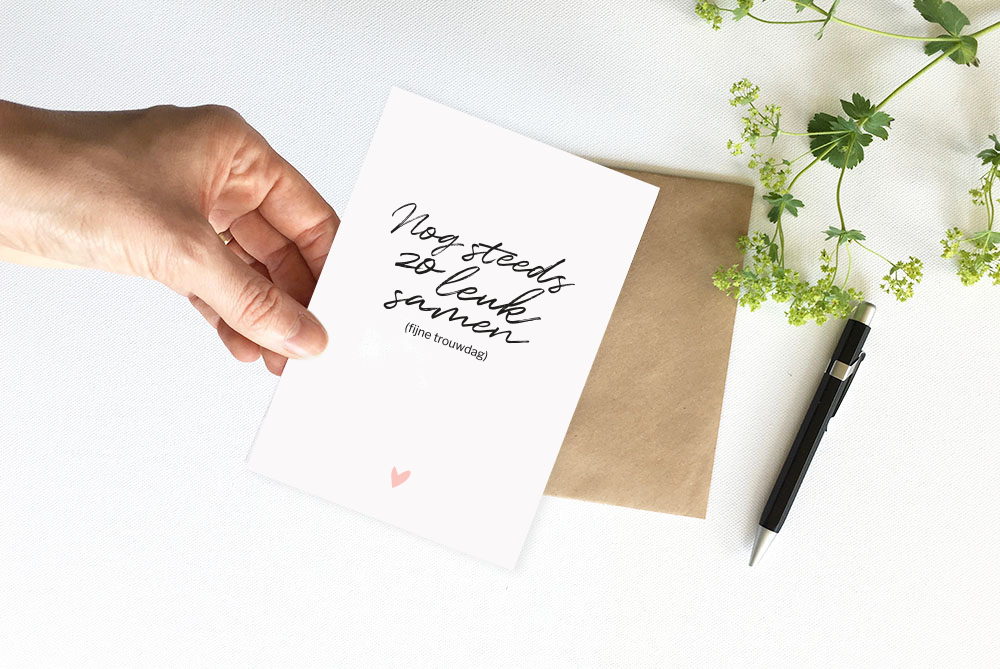 Nog steeds
zo leuk
samen
(fijne trouwdag)